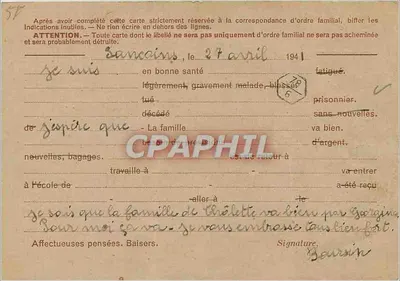 58
Après avoir complété cette carte strictement réservée à la correspondance d'ordre familial, biffer les
indications inutiles. — Ne rien écrire en dehors des lignes.
ATTENTION. — Toute carte dont le libellé ne sera pas uniquement d'ordre familial ne sera pas acheminée
et sera probablement détruite.
Sancoins, le 27 avril 1941
je suis en bonne santé fatigué.
légèrement, gravement malade, blessé
tué prisonnier.
décédé sans nouvelles.
de j'espère que - La famille va bien.
besoin de provisions d'argent.
nouvelles, bagages. est de retour à
travaille à va entrer
à l'école de a été reçu
aller à le
je sais que la famille de va bien par
Pour moi ça va - je vous embrasse tous bien fort.
Affectueuses pensées. Baisers. Signature.
CPAPHIL